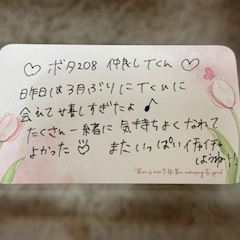 ♡ ボタ208 仲良してくん ♡
昨日は3月ぶりにてくんに
会えて嬉しすぎたよ♪
たくさん一緒に気持ちよくなれて
よかった またいっぱいイチャイチャ
しようね!!